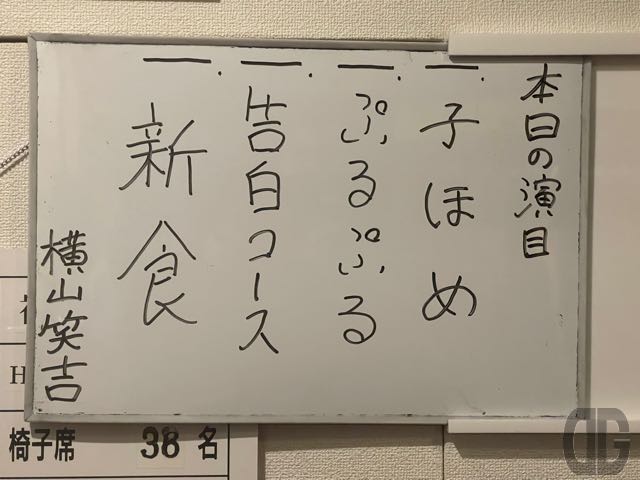 本日の演目
一.子ほめ
一.ぷるぷる
一.告白コース
一.新食
横山笑吉
H
椅子席 38 名
DG